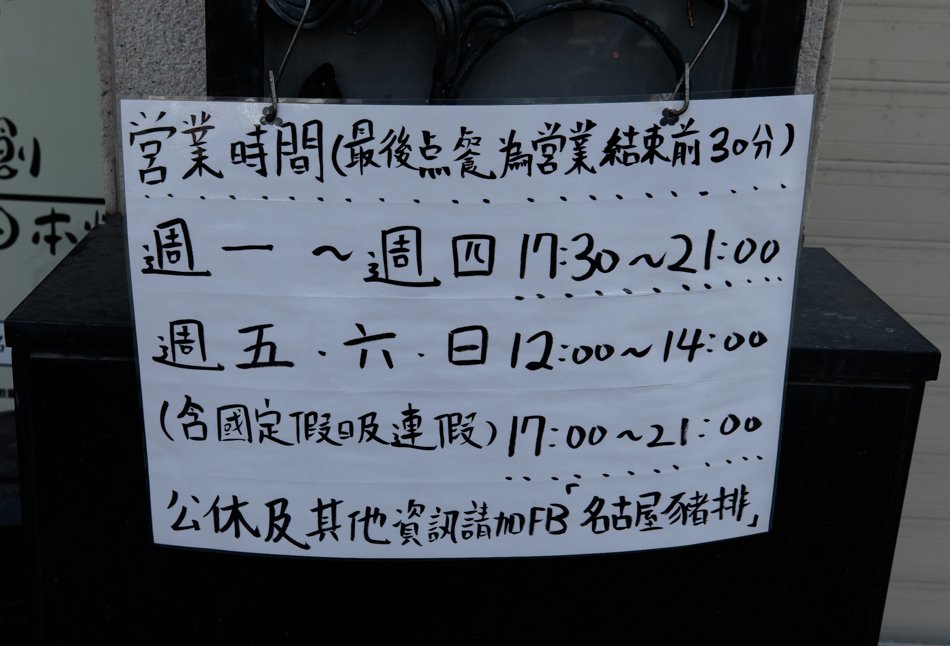 営業時間(最後点餐為営業結束前30分)
週一~週四17:30~21:00
週五.六.日12:00~14:00
(含國定假日及連假)17:00~21:00
公休及其他資訊請加FB「名古屋豬排」
日本料